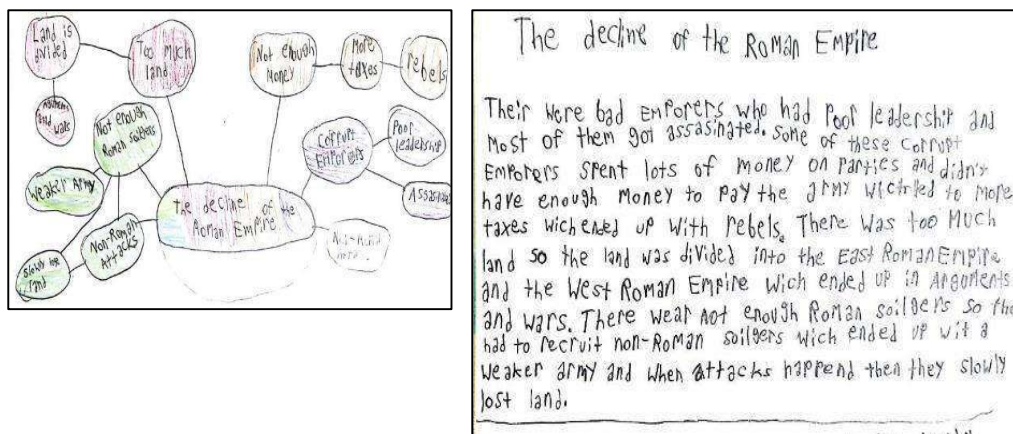 Land is
divided
Too Much
land
Not enough
Money
More
taxes
rebels
and wars
Not enough
Roman soilders
Corrupt
Emporers
Poor
leadership
Weaker Army
The decline of the
Roman Empire
Assasinated
Non-Roman
Attacks
Slowly
land
The decline of the Roman Empire
Their were bad Emporers who had Poor leadership and
most of them got assasinated. Some of these corrupt
Emporers spent lots of money on parties and didn't
have enough money to pay the army wich led to more
taxes wich ended up with rebels. There was too much
land so the land was divided into the East Roman Empire
and the West Roman Empire wich ended up in Arguments
and wars. There wear not enough Roman soilgers so the
had to recruit non-Roman soilgers wich ended up wit a
weaker army and when attacks happend then they slowly
lost land.